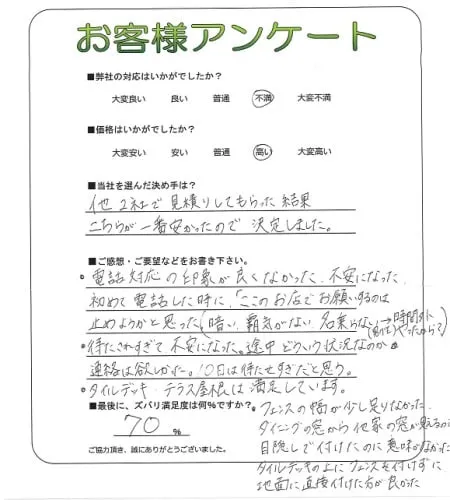 お客様アンケート
■弊社の対応はいかがでしたか？
大変良い 良い 普通 不満 大変不満
■価格はいかがでしたか？
大変安い 安い 普通 高い 大変高い
■当社を選んだ決め手は？
他2社で見積りしてもらった結果
こちらが一番安かったので決定しました。
■ご感想・ご要望などをお書き下さい。
・電話対応の印象が良くなかった、不安になった
初めて電話した時に、「ここのお店でお願いするのは
止めようかと思った(暗い、覇気がない、名乗らない→時間外
だったからかも
・待たされすぎて不安になった。途中どういう状況なのか
連絡は欲しかった。10日は待たせすぎだと思う。
・タイルデッキ・テラス屋根は満足しています。
■最後に、ズバリ満足度は何%ですか？
70 %
ご協力頂き、誠にありがとうございました。
・フェンスの幅が少し足りなかった。
ダイニングの窓から他家の窓が見えるので
目隠しで付けたのに意味がなかった
タイルデッキの上にフェンスを付けずに
地面に直接付けた方が良かった